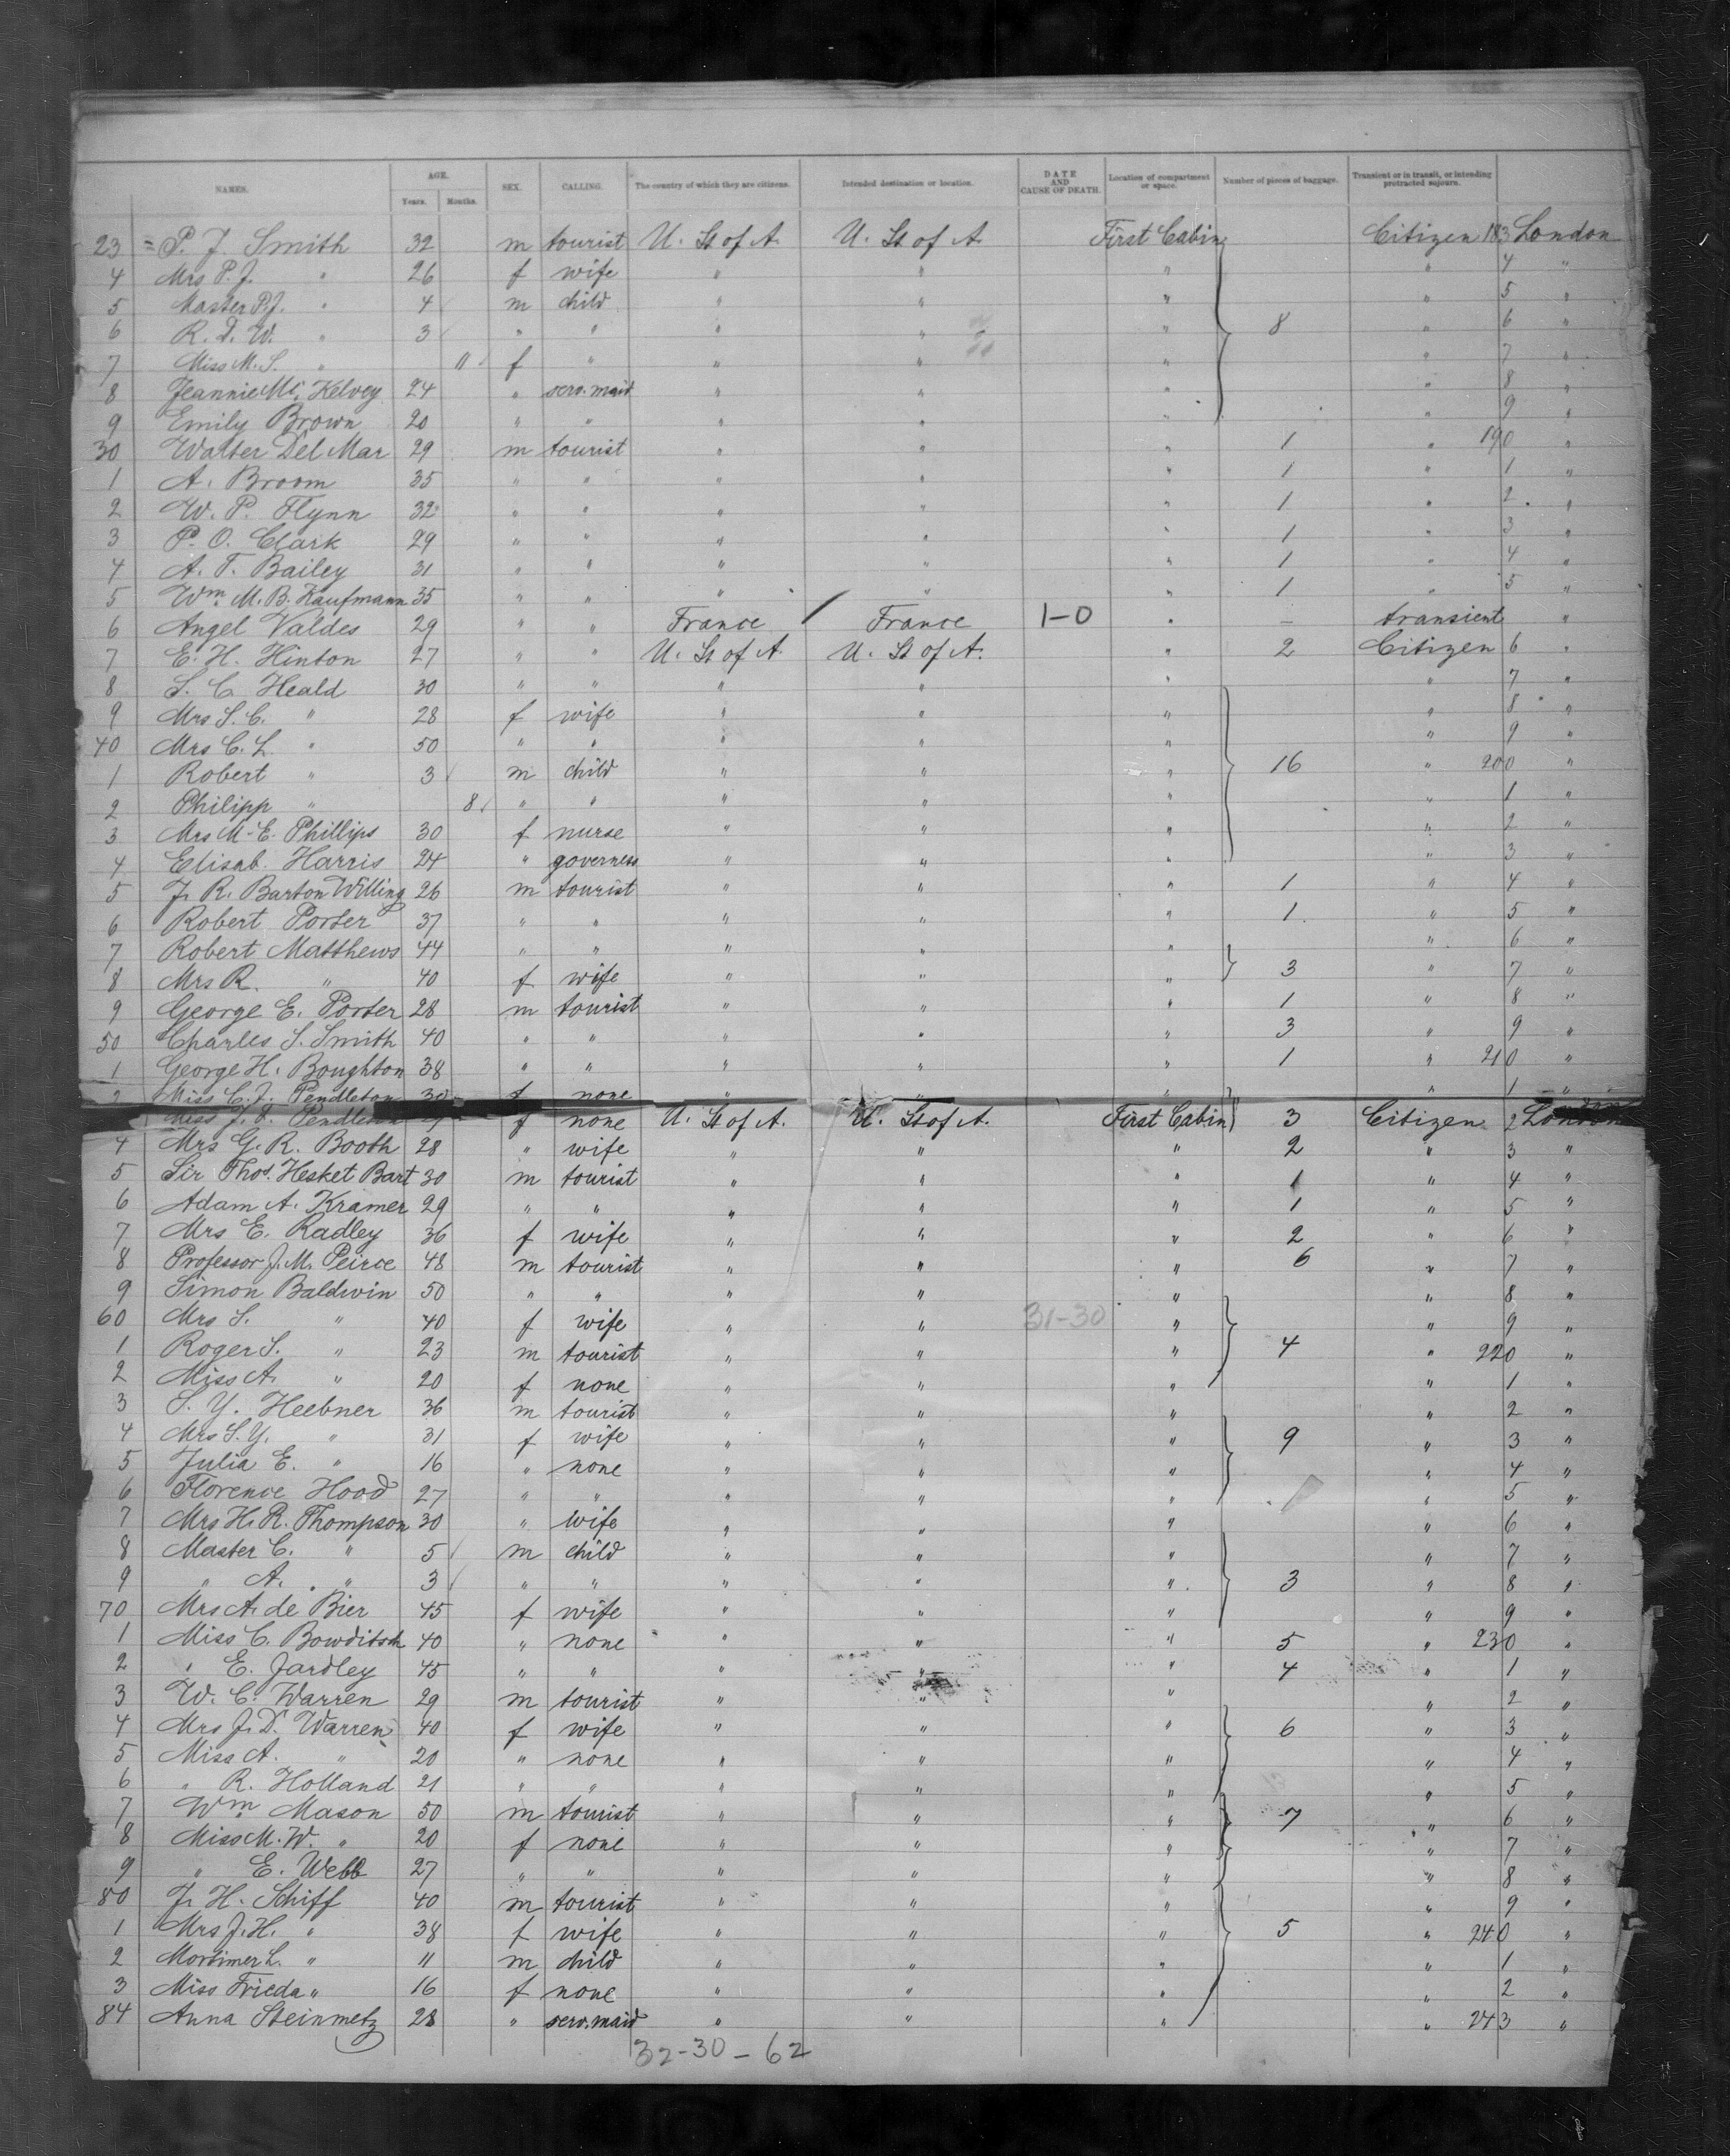 NAMES. AGE. Years. Months. SEX. CALLING. The country of which they are citizens. Intended destination or location. DATE AND CAUSE OF DEATH. Location of compartment or space. Number of pieces of baggage. Transient or in transit, or intending protracted sojourn.
23 = P. J. Smith 32 m tourist U. St of A. U. St of A. First Cabin Citizen 183 London
4 Mrs P. J. " 26 f wife " " " " 4 "
5 Master P. J. " 4 m child " " " " 5 "
6 R. D. W. " 3 " " " " " 8 " 6 "
7 Miss M. S. " 11 f " " " " " 7 "
8 Jeannie Mc Kelvey 24 " serv. maid " " " " 8 "
9 Emily Brown 20 " " " " " " 9 "
30 Walter Del Mar 29 m tourist " " " 1 " 190 "
1 A. Broom 35 " " " " " 1 " 1 "
2 W. P. Flynn 32 " " " " " 1 " 2 "
3 P. O. Clark 29 " " " " " 1 " 3 "
4 A. T. Bailey 31 " " " " " 1 " 4 "
5 Wm. M. B. Kaufmann 35 " " " " " 1 " 5 "
6 Angel Valdes 29 " " France / France 1-0 " - transient "
7 E. H. Hinton 27 " " U. St of A. U. St of A. " 2 Citizen 6 "
8 S. C. Heald 30 " " " " " " 7 "
9 Mrs S. C. " 28 f wife " " " " 8 "
40 Mrs C. L. " 50 " " " " " " 9 "
1 Robert " 3 m child " " " 16 " 200 "
2 Philipp " 8 " " " " " " 1 "
3 Mrs M. E. Phillips 30 f nurse " " " " 2 "
4 Elisab. Harris 24 " governess " " " " 3 "
5 J. R. Barton Willing 26 m tourist " " " 1 " 4 "
6 Robert Porter 37 " " " " " 1. " 5 "
7 Robert Matthews 44 " " " " " " 6 "
8 Mrs R. " 40 f wife " " " 3 " 7 "
9 George E. Porter 28 m tourist " " " 1 " 8 "
50 Charles S. Smith 40 " " " " " 3 " 9 "
1 George H. Boughton 38 " " " " " 1 " 210 "
2 Miss C. J. Pendleton 30 f none " " " " 1 "
Miss J. Pendleton f none U. St of A. U. St of A. First Cabin 3 Citizen 2 London
4 Mrs G. R. Booth 28 " wife " " " 2 " 3 "
5 Sir Thos. Hesket Bart 30 m tourist " " " 1 " 4 "
6 Adam A. Kramer 29 " " " " " 1 " 5 "
7 Mrs E. Radley 36 f wife " " " 2 " 6 "
8 Professor J. M. Peirce 48 m tourist " " " 6 " 7 "
9 Simon Baldwin 50 " " " " " " 8 "
60 Mrs S. " 40 f wife " " 31-30 " " 9 "
1 Roger S. " 23 m tourist " " " 4 " 220 "
2 Miss A. " 20 f none " " " " 1 "
3 S. Y. Heebner 36 m tourist " " " " 2 "
4 Mrs S. Y. " 31 f wife " " " 9 " 3 "
5 Julia E. " 16 " none " " " " 4 "
6 Florence Hood 27 " " " " " " 5 "
7 Mrs H. R. Thompson 30 " wife " " " " 6 "
8 Master C. " 5 m child " " " " 7 "
9 " A. " 3 " " " " " 3 " 8 "
70 Mrs A. de Bier 45 f wife " " " " 9 "
1 Miss C. Bowditch 40 " none " " " 5 " 230 "
2 " E. Jardley 45 " " " " " 4 " 1 "
3 W. C. Warren 29 m tourist " " " " 2 "
4 Mrs J. D. Warren 40 f wife " " " 6 " 3 "
5 Miss A. " 20 " none " " " " 4 "
6 " R. Holland 21 " " " " " " 5 "
7 Wm Mason 50 m tourist " " " 7 " 6 "
8 Miss M. W. " 20 f none " " " " 7 "
9 " E. Webb 27 " " " " " " 8 "
80 J. H. Schiff 40 m tourist " " " " 9 "
1 Mrs J. H. " 38 f wife " " " 5 " 240 "
2 Mortimer L. " 11 m child " " " " 1 "
3 Miss Frieda " 16 f none " " " " 2 "
84 Anna Steinmetz 28 " serv. maid " " " " 243 "
32-30-62